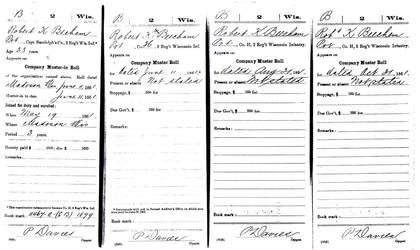 B 2 Wis.
Robert K. Beecham
Pvt., Capt. Randolph's Co., 2 Reg't Wis. Inf.*
Age 23 years.
Appears on
Company Muster-in Roll
of the organization named above. Roll dated
Madison Wis June 11, 1861.
Muster-in to date June 11, 1861.
Joined for duty and enrolled:
When May 19, 1861.
Where Madison Wis
Period 3 years.
Bounty paid $ 100; due $ 100
Remarks:
Book mark:
P Davies
Copyist.
2 Wis.
Robert K. Beecham
Pvt, Co. H, 2 Reg't Wisconsin Inf.
Appears on
Company Muster Roll
for dated June 11, 1861.
Present or absent Not stated
Stoppage, $ 100 for
Due Gov't, $ 100 for
Remarks:
Book mark:
P Davies
Copyist.
B 2 Wis.
Robert K. Beecham
Pvt, Co. H, 2 Reg't Wisconsin Infantry.
Appears on
Company Muster Roll
for dated Aug 31, 1861.
Present or absent Not stated
Stoppage, $ 100 for
Due Gov't, $ 100 for
Remarks:
Book mark:
P Davies
Copyist.
B 2 Wis.
Rob't K. Beecham
Pvt, Co. H, 2 Reg't Wisconsin Infantry.
Appears on
Company Muster Roll
for dated Oct 31, 1861.
Present or absent Not stated
Stoppage, $ 100 for
Due Gov't, $ 100 for
Remarks:
Book mark:
P Davies
Copyist.